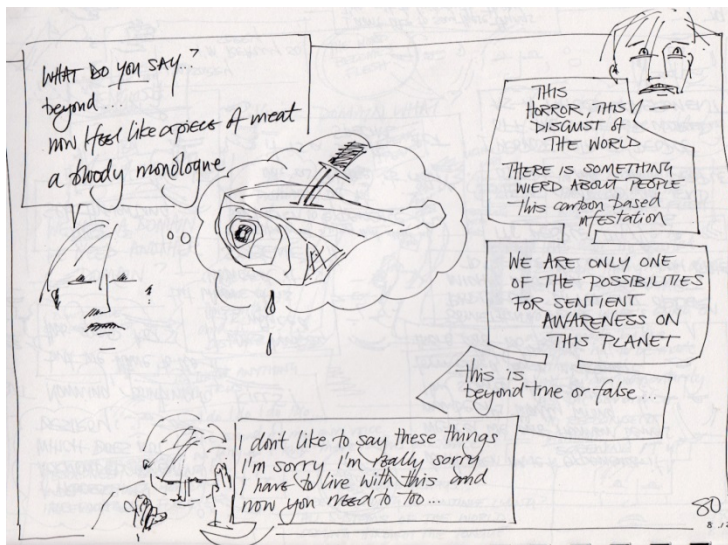 WHAT DO YOU SAY..?
beyond
now I feel like a piece of meat
a bloody monologue
THIS
HORROR, THIS
DISGUST of
THE WORLD
THERE IS SOMETHING
WIERD ABOUT PEOPLE
This carbon based
infestation
WE ARE ONLY ONE
OF THE POSSIBILITIES
FOR SENTIENT
AWARENESS ON
THIS PLANET
this is
beyond true or false...
I dont like to say these things
I'm sorry I'm really sorry
I have to live with this and
now you need to too...
80